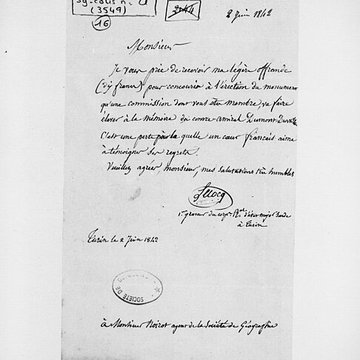 (3549)
16
2 Juin 1842
Monsieur
Je vous prie de recevoir ma légère offrande
pour concourir à l'érection du monument
qu'une commission dont vous êtes membre va faire
élever à la mémoire du contre amiral Dumont Durville
C'est une perte par la quelle un cœur français aime
à témoigner ses regrets.
Veuillez agréer monsieur, mes salutations très humbles
Lecoq
à
le 2 Juin 1842
SOCIÉTÉ DE
à Monsieur Noirot agent de la Société de Géographie